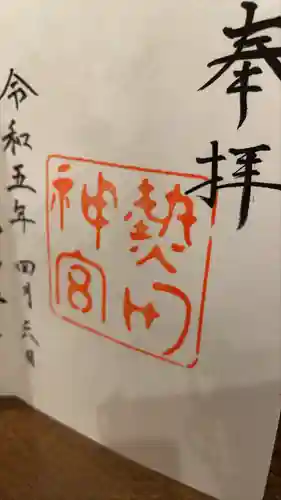 奉拝
熱田
神宮
令和五年四月六日